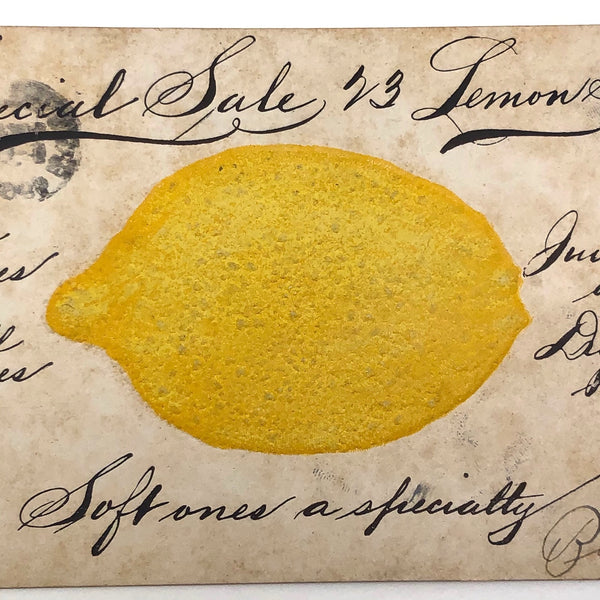 ecial Sale 73 Lemons
es
es
Jui
Dr
Soft ones a specialty